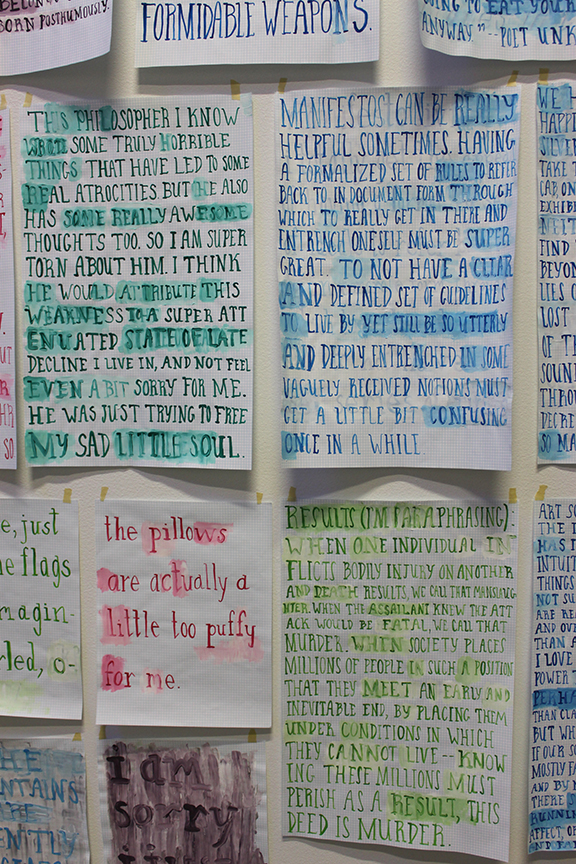 BORN POSTHUMOUSLY.
FORMIDABLE WEAPONS.
TO EAT YOU
ANYWAY." -- POET UNK
THIS PHILOSOPHER I KNOW
WROTE SOME TRULY HORRIBLE
THINGS THAT HAVE LED TO SOME
REAL ATROCITIES. BUT HE ALSO
HAS SOME REALLY AWESOME
THOUGHTS TOO. SO I AM SUPER
TORN ABOUT HIM. I THINK
HE WOULD ATTRIBUTE THIS
WEAKNESS TO A SUPER ATT
ENUATED STATE OF LATE
DECLINE I LIVE IN, AND NOT FEEL
EVEN A BIT SORRY FOR ME.
HE WAS JUST TRYING TO FREE
MY SAD LITTLE SOUL.
MANIFESTOS CAN BE REALLY
HELPFUL SOMETIMES. HAVING
A FORMALIZED SET OF RULES TO REFER
BACK TO IN DOCUMENT FORM THROUGH
WHICH TO REALLY GET IN THERE AND
ENTRENCH ONESELF MUST BE SUPER
GREAT. TO NOT HAVE A CLEAR
AND DEFINED SET OF GUIDELINES
TO LIVE BY YET STILL BE SO UTTERLY
AND DEEPLY ENTRENCHED IN SOME
VAGUELY RECEIVED NOTIONS MUST
GET A LITTLE BIT CONFUSING
ONCE IN A WHILE.
WE
TAKE
CAR, ON
FIND
LIES
LOST
OF
SO
e, just
flags
magin-
led, o-
the pillows
are actually a
little too puffy
for me.
RESULTS (I'M PARAPHRASING):
WHEN ONE INDIVIDUAL IN
FLICTS BODILY INJURY ON ANOTHER
AND DEATH RESULTS, WE CALL THAT MANSLAUG
HTER. WHEN THE ASSAILANT KNEW THE ATT
ACK WOULD BE FATAL, WE CALL THAT
MURDER. WHEN SOCIETY PLACES
MILLIONS OF PEOPLE IN SUCH A POSITION
THAT THEY MEET AN EARLY AND
INEVITABLE END, BY PLACING THEM
UNDER CONDITIONS IN WHICH
THEY CANNOT LIVE -- KNOW
ING THESE MILLIONS MUST
PERISH AS A RESULT, THIS
DEED IS MURDER.
ART
THE
HAS
THINGS
NOT
ARE
AND
THAN
I LOVE
POWER
THAN
BUT
IF OUR
MOSTLY
AND
THERE
THE
ARE
i am
sorry